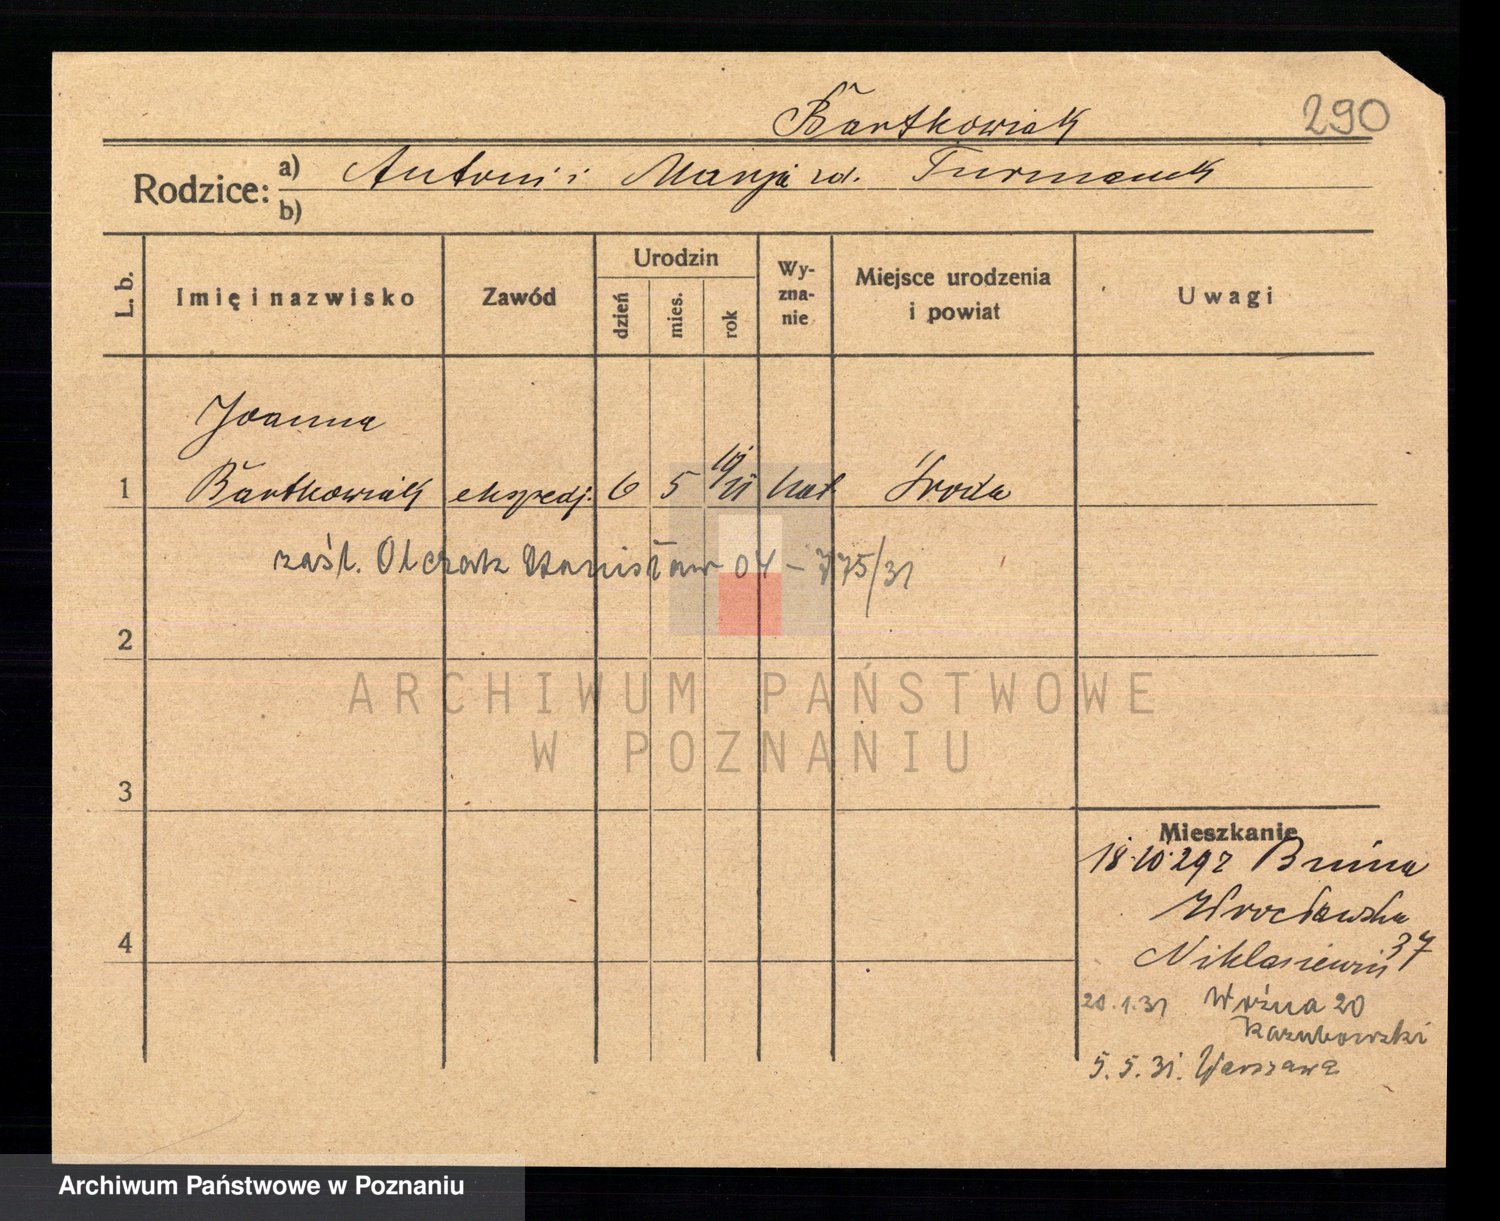 Bartkowiak 290
Rodzice: a) Antoni i Marja rd. Furmanek
b)
L. b. Imię i nazwisko Zawód Urodzin dzień mies. rok Wyznanie Miejsce urodzenia i powiat Uwagi
Joanna
1 Bartkowiak ekspedj. 6 5 19/11 kat. Środa
zaśl. Olczak Stanisław 04 – 775/31
2
ARCHIWUM PAŃSTWOWE
W POZNANIU
3
Mieszkanie
18.10.29 z Bnina
Wrocławska
4
37
20.1.31 Woźna 20
5.5.31. Warszawa
Archiwum Państwowe w Poznaniu